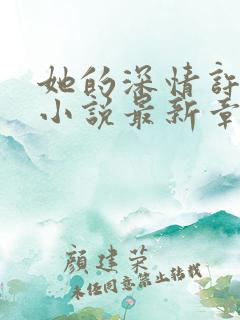 她的深情許
小說最新章
顏建榮
未經同意禁止轉載